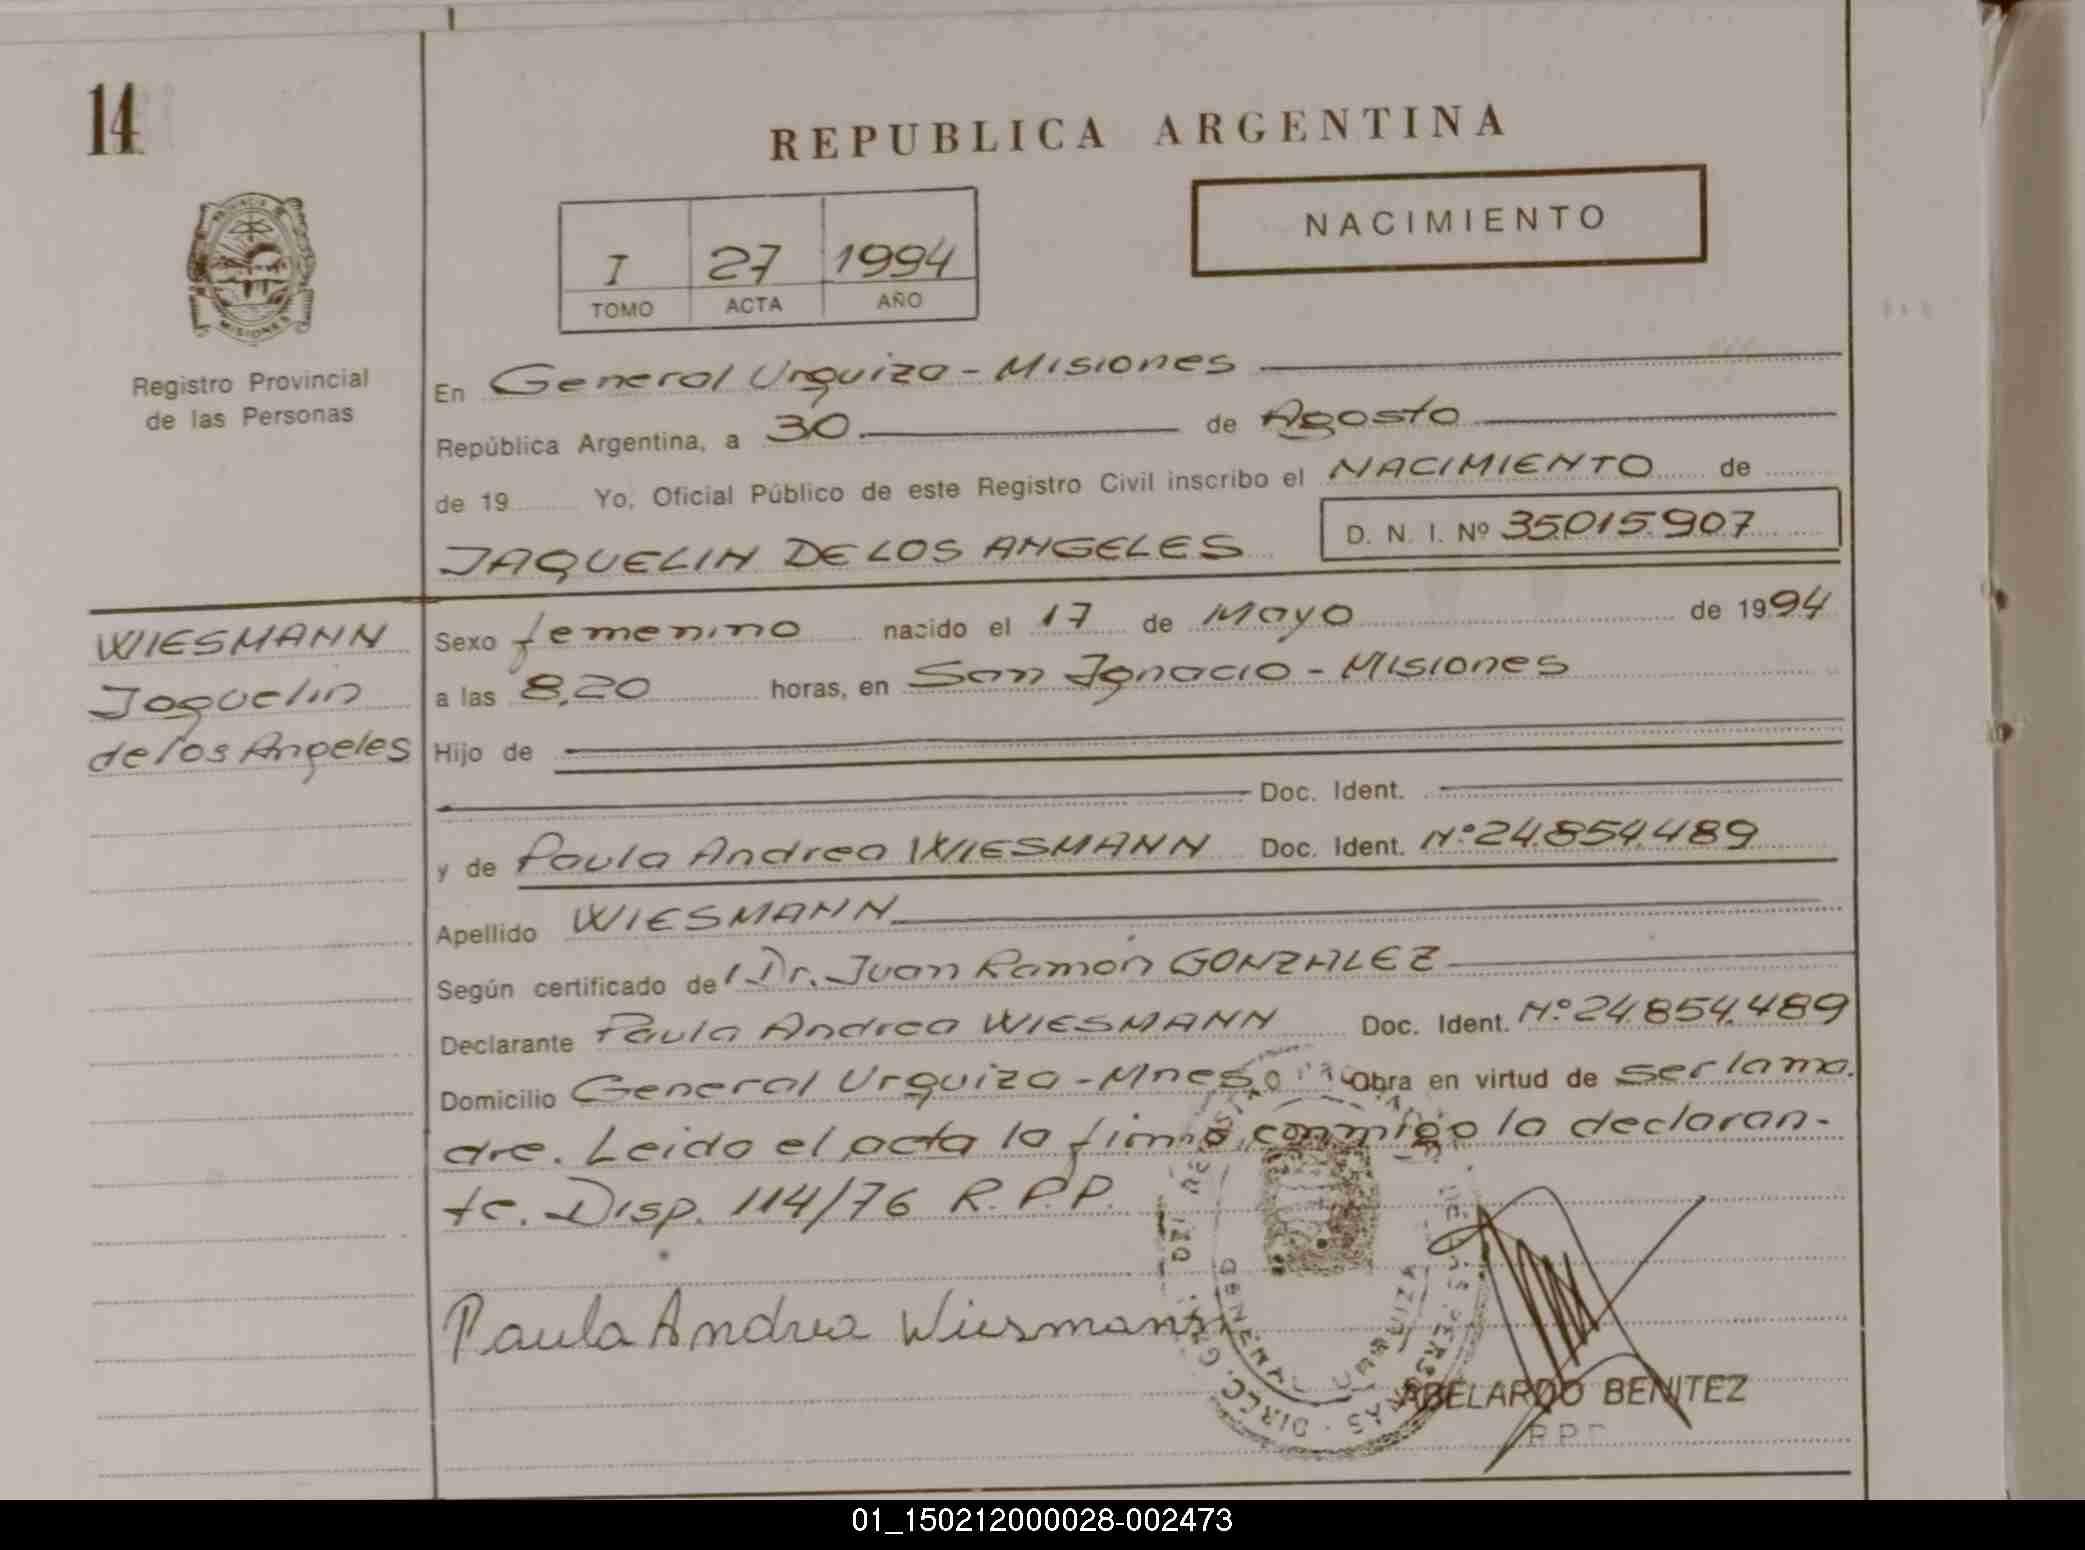 14
REPUBLICA ARGENTINA
NACIMIENTO
I 27 1994
TOMO ACTA AÑO
PROVINCIA DE
MISIONES
Registro Provincial
de las Personas
En General Urquiza - Misiones
República Argentina, a 30 de Agosto
de 19 Yo, Oficial Público de este Registro Civil inscribo el NACIMIENTO de
JAQUELIN DE LOS ANGELES D. N. I. Nº 35.015.907
WIESMANN
Jaquelin
de los Angeles
Sexo femenino nacido el 17 de Mayo de 1994
a las 8,20 horas, en San Ignacio - Misiones
Hijo de
Doc. Ident.
y de Paula Andrea WIESMANN Doc. Ident. Nº 24.854.489
Apellido WIESMANN
Según certificado de Dr. Juan Ramón GONZALEZ
Declarante Paula Andrea WIESMANN Doc. Ident. Nº 24.854.489
Domicilio General Urquiza - Mnes. Obra en virtud de ser la ma.
dre. Leido el acta la firma conmigo la declaran-
te. Disp. 114/76 R.P.P.
Paula Andrea Wiesmann
ABELARDO BENITEZ
R.P.P.
01_150212000028-002473